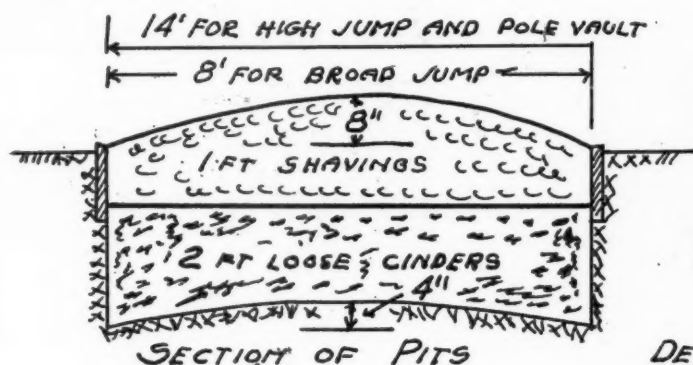 14' FOR HIGH JUMP AND POLE VAULT
8' FOR BROAD JUMP
8"
1 FT SHAVINGS
2 FT LOOSE CINDERS
4"
SECTION OF PITS DE